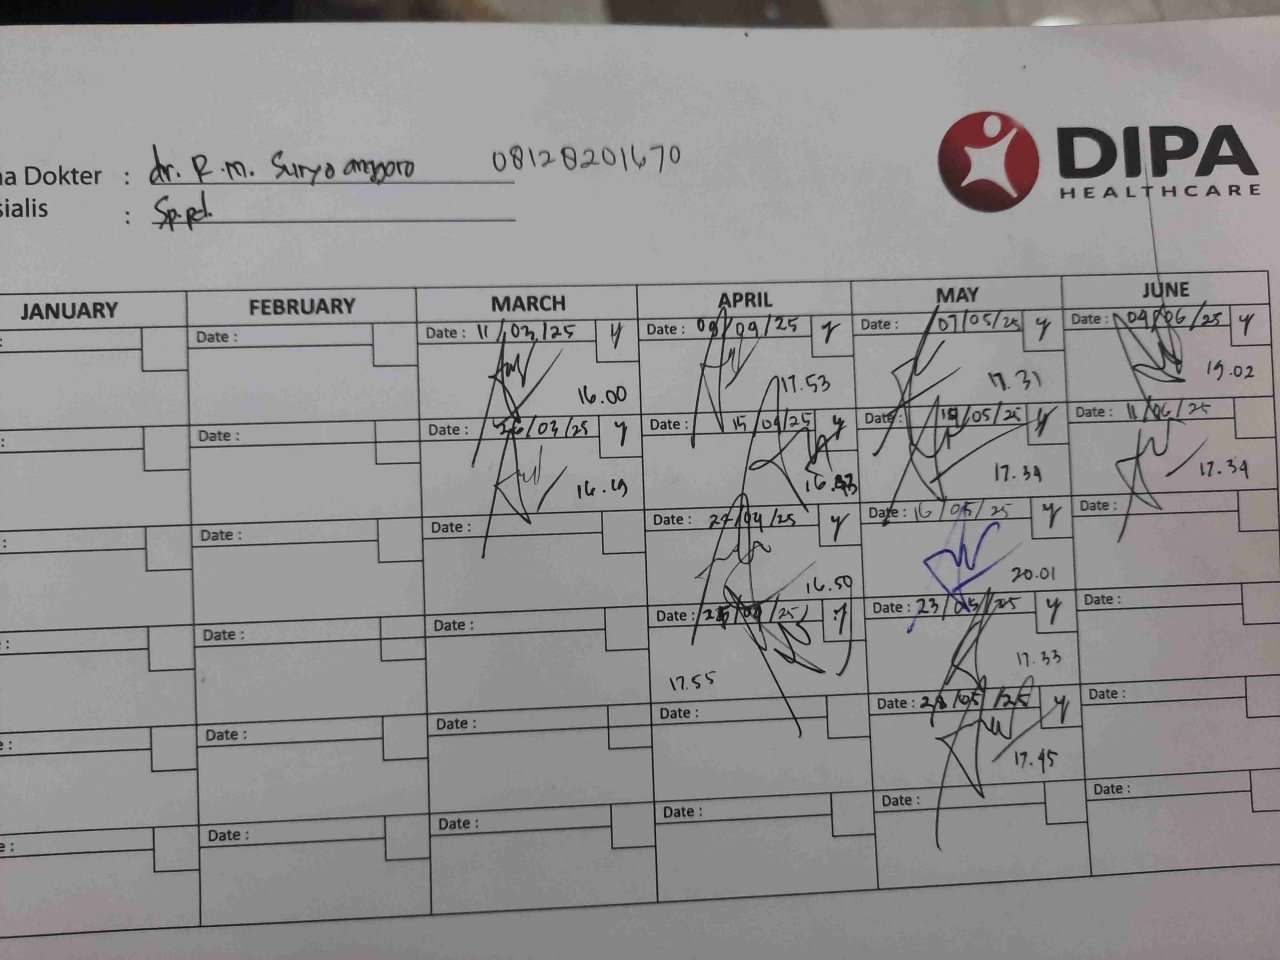 DIPA
HEALTHCARE
a Dokter : dr. R.M. Suryo anggoro 08128201670
sialis : Sp.pd.
JANUARY FEBRUARY MARCH APRIL MAY JUNE
: Date : Date : 11/03/25 y Date : 09/04/25 y Date : 07/05/25 y Date : 04/06/25 y
16.00 17.53 17.31 19.02
: Date : Date : 26/03/25 y Date : 15/04/25 y Date : /05/25 y Date : 11/06/25
16.49 17.34 17.34
: Date : Date : Date : 22/04/25 y Date : 16/05/25 y Date :
16.50 20.01
: Date : Date : Date : y Date : 23/05/25 y Date :
17.55 17.33
: Date : Date : Date : Date : 28/05/25 y Date :
17.45
: Date : Date : Date : Date : Date :